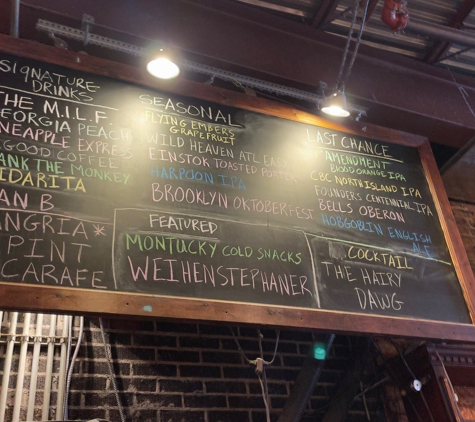 SIGNATURE
DRINKS
THE M.I.L.F.
GEORGIA PEACH
PINEAPPLE EXPRESS
GOOD COFFEE
THE MONKEY
AN B
SANGRIA*
PINT
CARAFE
SEASONAL
FLYING EMBERS
GRAPEFRUIT
WILD HEAVEN ATL
EINSTOK TOASTED PORTER
HARPOON IPA
BROOKLYN OKTOBERFEST
FEATURED
MONTUCKY COLD SNACKS
WEIHENSTEPHANER
LAST CHANCE
AMENDMENT
BLOOD ORANGE IPA
CBC NORTH ISLAND IPA
FOUNDERS CENTENNIAL IPA
BELLS OBERON
HOBGOBLIN ENGLISH
ALE
COCKTAIL
THE HAIRY
DAWG